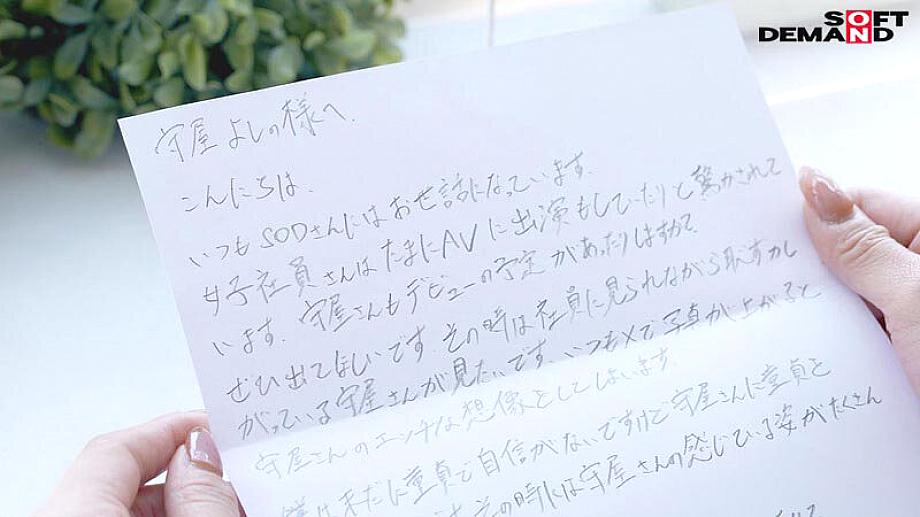 SOFT
DEMAND
ON
守屋よしの様へ.
こんにちは.
いつもSODさんにはお世話になっています.
女子社員さんはたまにAVに出演もしていたりと驚かされて
います. 守屋さんもデビューの予定があったりしますか?
ぜひ出てほしいです. その時は社員に見られながら恥ずかし
がっている守屋さんが見たいです. いつもXで写真が上がると
守屋さんのエッチな想像をしてしまいます.
僕は未だに童貞で自信がないですけど守屋さんに童貞を
その時には守屋さんの感じている姿がたくさん